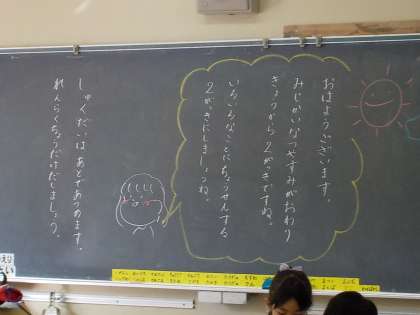 おはようございます。
みじかいなつやすみがおわり
きょうから２がっきですね。
いろいろなことにちょうせんする
２がっきにしましょうね。
しゅくだいはあとであつめます。
れんらくちょうだけだしましょう。